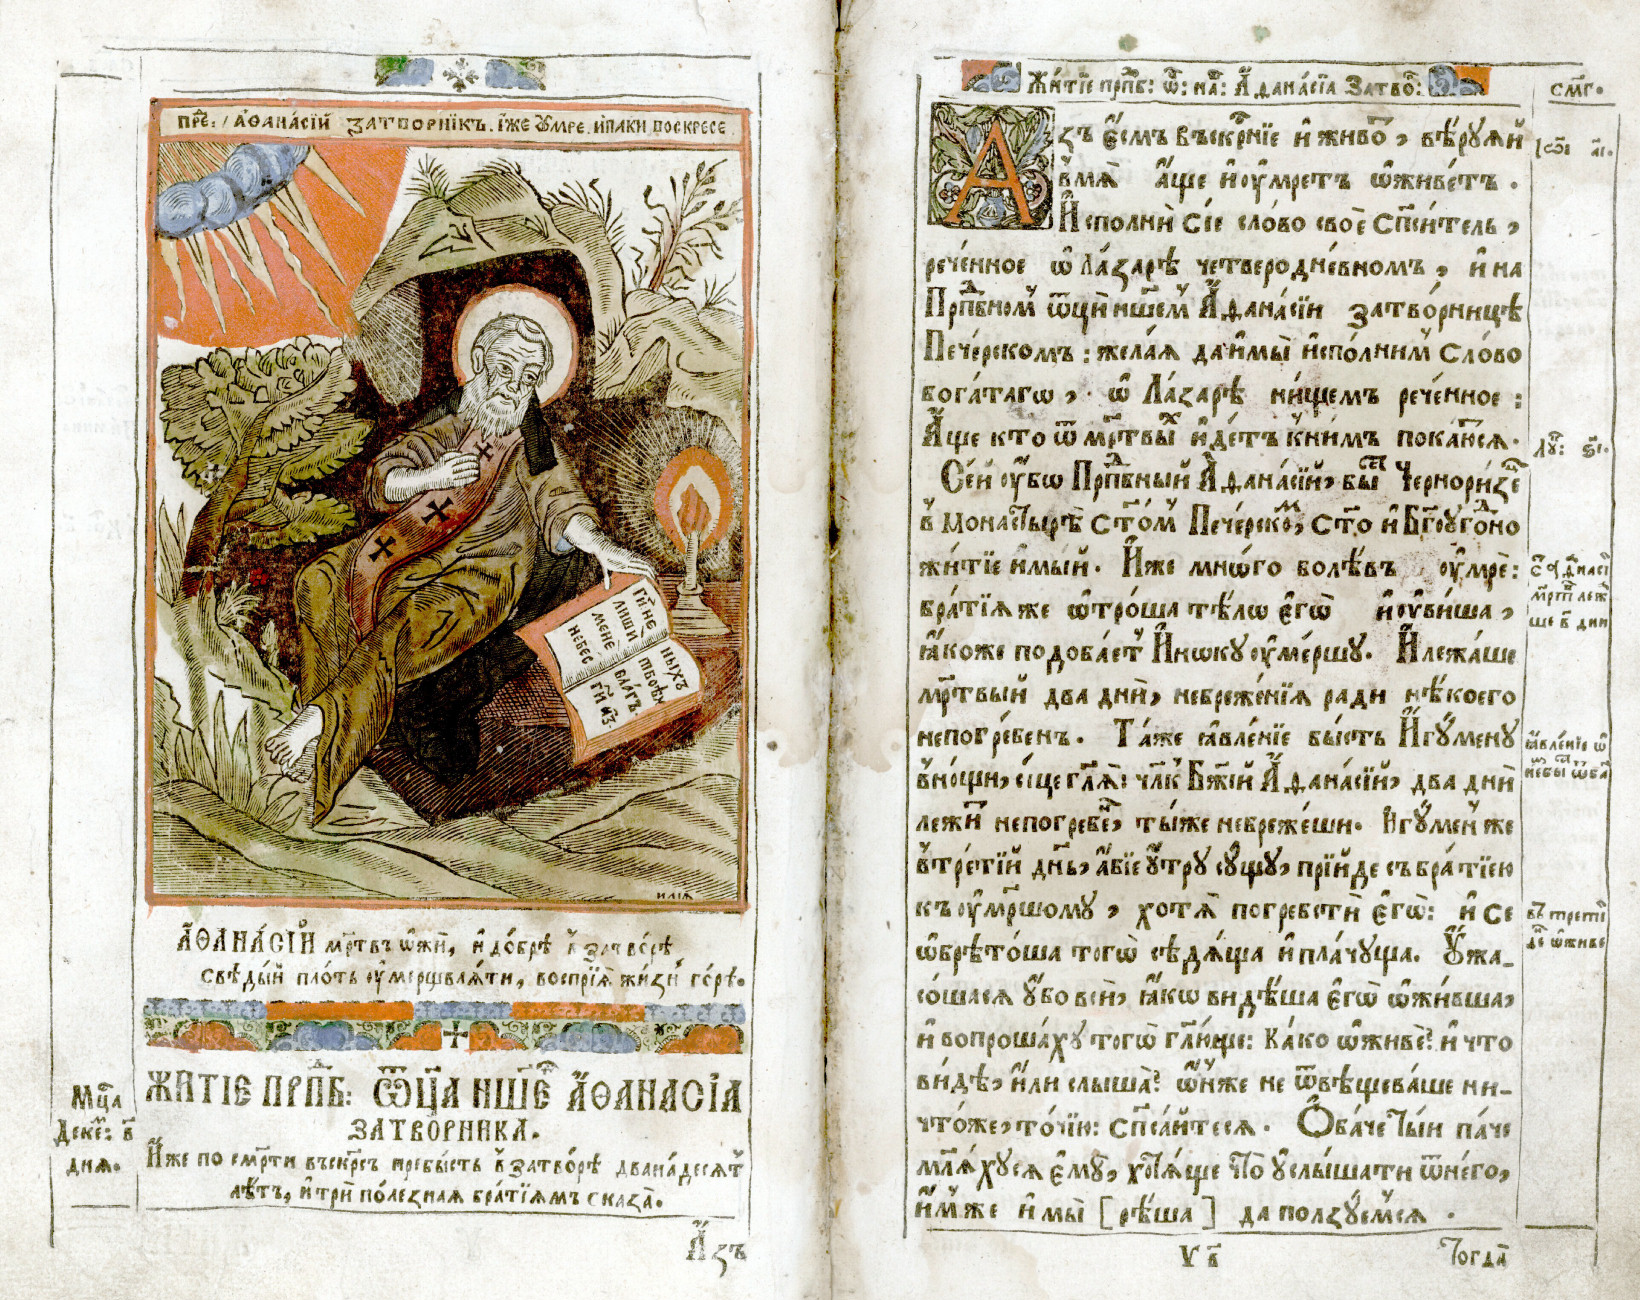 ПРЕ: АѲАНА́СІЙ ЗАТВОРНІКЪ. И́ЖЕ ꙊМРЕ, ИПАКИ ВОСКРЕСЕ
ГИ҃ НЕ
ЛИШИ
МЕНЕ
НЕБЕС
НЫХЪ
ТВОИХЪ
БЛАГЪ.
ГИ҃
ИЛІѦ
АѲАНА́СІЙ мр҃твъ ѡ҆жи́, и҆ до́брѣ в̾затво́рѣ
свѣ́дый пло́ть ᲂу҆мерщвлѧ́ти, воспрїѧ̀ жи́знь го́рѣ.
ЖИТІЕ ПРПⷣБ: Ѿц҃А НШ҃Е АѲАНАСІА
ЗАТВОРНИКА.
Мцⷭ҇а
Деке́: в҃
днѧ̀.
И҆́же по смр҃ти въскр҃съ пребы́сть в̾затво́рѣ двана́десѧт
лѣ́тъ, и҆ трѝ поле́знаѧ бра́тїѧмъ сказа̀.
А҆́зъ
Жи́тїе прпⷣб: ѿ: на́: А҆ѳана́сїа Затво́:
смг.
А҆зъ є҆́смь въскр҃нїе и҆ живо́, вѣ́рꙋѧй
в̾мѧ̀ а҆́ще и҆ ᲂу҆́мретъ ѡ҆живе́тъ.
И҆спо́лни сїѐ сло́во своѐ Сп҃си́тель,
рече́нное ѡ҆ Ла́зарѣ четверодне́вномъ, и҆ на
Прпⷣбномъ ѿц҃ѝ нш҃емъ А҆ѳана́сїи затво́рницѣ
Пече́рскомъ: жела́ѧ да и҆ мы̀ и҆спо́лнимъ сло́во
бога́тагѡ, ѡ҆ Ла́зарѣ ни́щемъ рече́нное:
А҆́ще кто̀ ѿ мр҃твы́хъ и҆́детъ к̾ни́мъ пока́ютсѧ.
Се́й ᲂу҆́бѡ Прпⷣбный А҆ѳана́сїй, бы́сть Черно́ризецъ
в̾ Монастырѣ̀ ст҃о́мъ Пече́рскомъ, ст҃о и҆ Бг҃ᲂуго́дно
житїѐ и҆мы́й. И҆́же мно́гѡ болѣ́въ ᲂу҆́мре:
бра́тїѧ же ѡ҆тро́ша тѣ́ло є҆гѡ̀ и҆ ᲂу҆ви́ша,
ꙗ҆́коже подоба́етъ И҆́нокꙋ ᲂу҆ме́ршꙋ. И҆ лежа́ше
мр҃твый два̀ дни̑, небреже́нїѧ ра́ди нѣ́коего
непогре́бенъ. Та́же ꙗ҆вле́нїе бы́сть И҆гꙋ́менꙋ
в̾нощѝ, си́це гл҃ѧ: чл҃къ Бж҃їй А҆ѳана́сїй, два̀ днѝ
лежи́тъ непогребе́, ты́ же небреже́ши. И҆гꙋ́менъ же
в̾тре́тїй дн҃ь, а҆́бїе ᲂу҆́трꙋ сꙋ́щꙋ, прїи́де съ бра́тїею
къ ᲂу҆́мршомꙋ, хотѧ̀ погребстѝ є҆гѡ̀: и҆ се
ѡ҆брѣто́ша того̀ сѣдѧ́ща и҆ пла́чꙋща. Оу҆жа-
со́шасѧ ᲂу҆́бо всѝ, ꙗ҆́кѡ ви́дѣша є҆гѡ̀ ѡ҆жи́вша,
и҆ вопроша́хꙋ тогѡ̀ гл҃ю́ще: Ка́ко ѡ҆живѐ? и҆ что̀
ви́дѣ, и҆́ли слы́ша? ѡ҆́нже не ѿвѣщева́ше ни-
что́же, то́чїю: сп҃са́йтесѧ. Ѻ҆ба́че ты́и па́че
молѧ́хꙋсѧ є҆мꙋ̀, хотѧ́ще то̀ ᲂу҆слы́шати ѿ него̀,
и҆́мже и҆ мы̀ [рѣ́ша] да по́лзꙋемсѧ.
лꙋ: ѕ҃і.
ꙗ҆вле́нїе ѡ҆
въ трети́
де ѡ҆живе
У в҃
Тогда̀